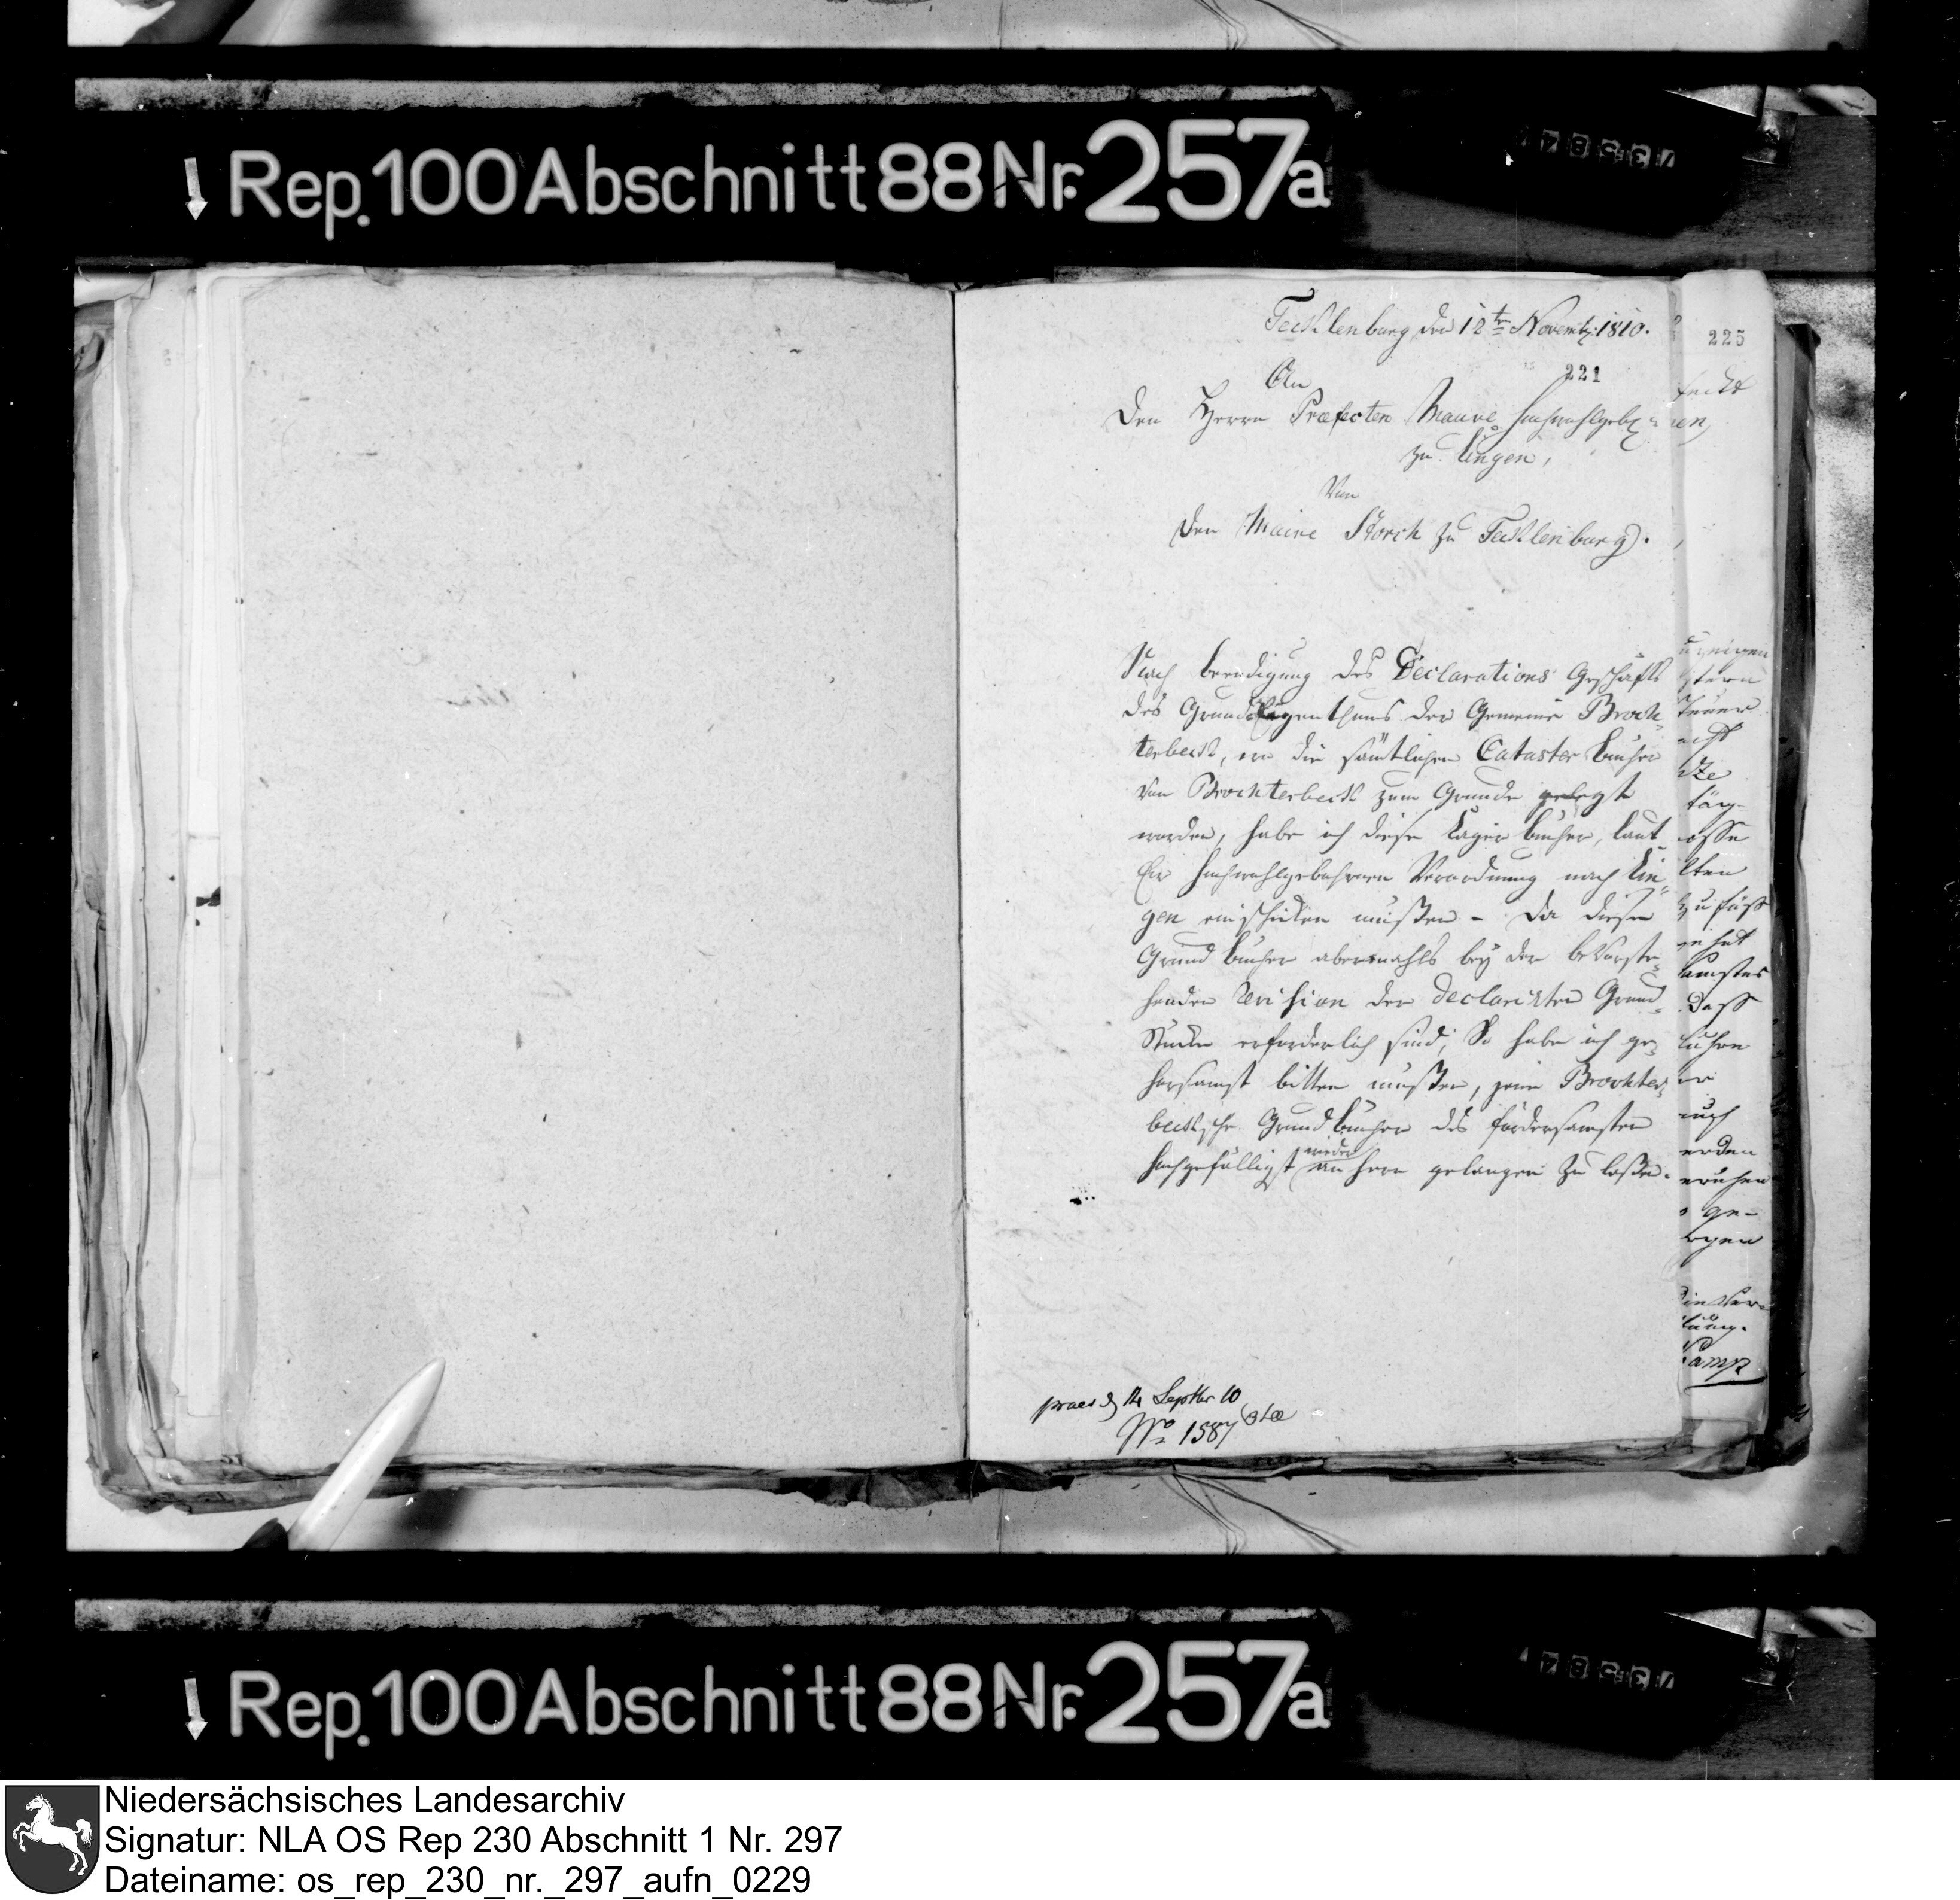 Rep. 100 Abschnitt 88 Nr. 257a
Tecklenburg den 12ten Novembr: 1810.
225
An
221
Den Herrn Præfecten Mauve Hochwohlgeb:
zu Lingen,
Von
Den Maire Storck zu Tecklenburg.
Nach beendigung des Declarations Geschäfts
des Grundeigenthums der Gemeine Broch-
terbeck, wo die sämtlichen Cataster bücher
von Brochterbeck zum Grunde gelegt
worden, habe ich diese Lager bücher, laut
Ew Hochwohlgebohrnen Verordnung nach Lin-
gen einschicken müßen - Da diese
Grund bücher abermahls bey der bevorste-
henden Revision der declarirten Grund-
Stücke erforderlich sind, So habe ich ge-
horsamst bitten müßen, jene Brochter-
becksche Grundbücher des fördersamsten
hochgefälligst wieder an hero gelangen zu laßen.
zufuß
hat
Daß
erden
ge-
Kamp
praes d 14 Septbr 10
No 1587
Rep. 100 Abschnitt 88 Nr. 257a
Niedersächsisches Landesarchiv
Signatur: NLA OS Rep 230 Abschnitt 1 Nr. 297
Dateiname: os_rep_230_nr._297_aufn_0229